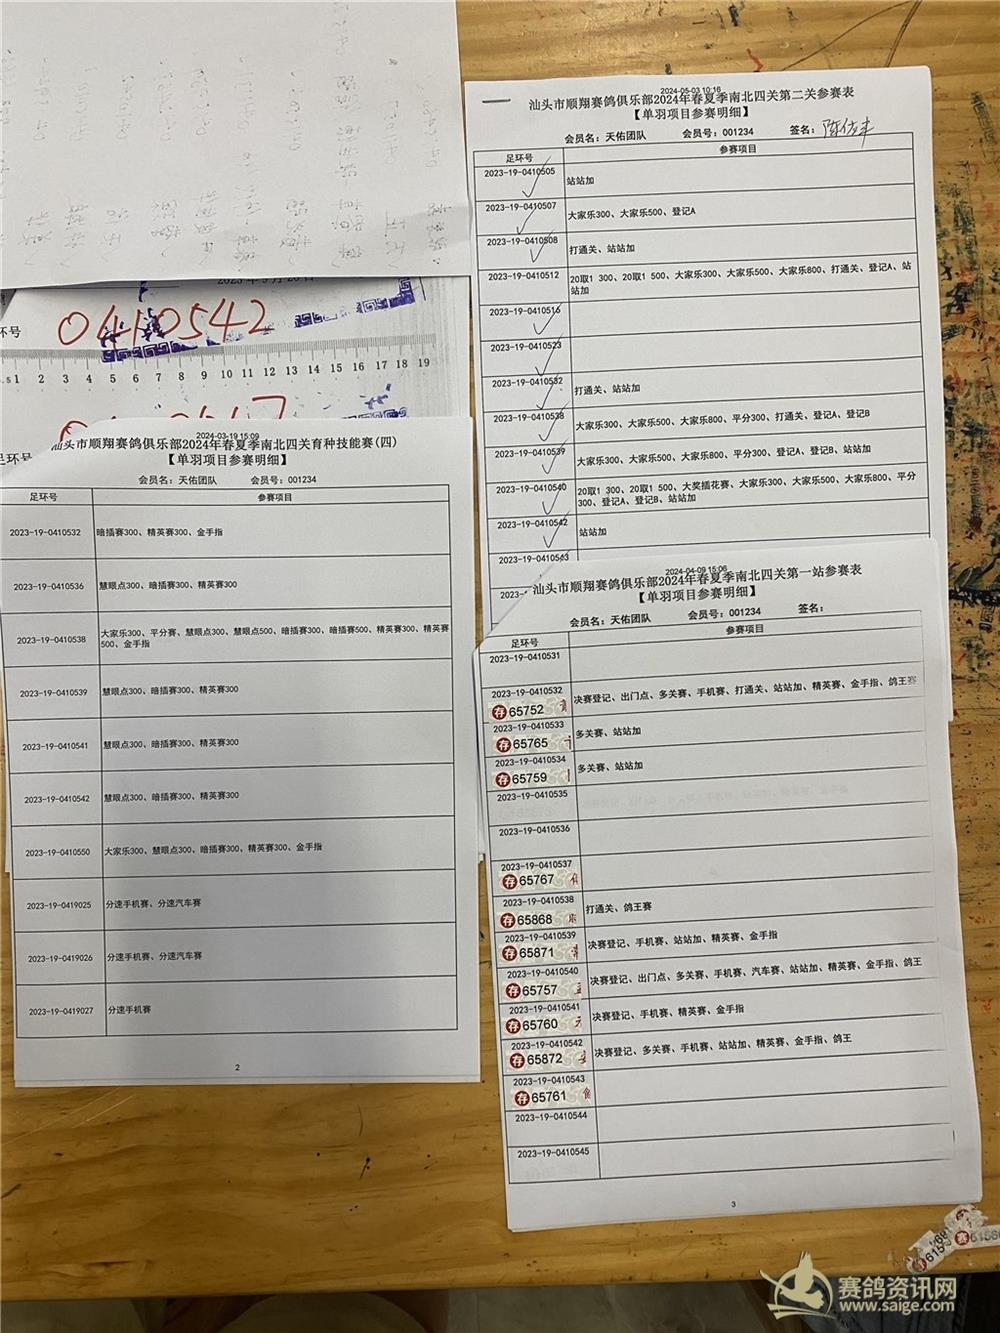 环号
0410542
1 2 3 4 5 6 7 8 9 10 11 12 13 14 15 16 17 18 19
2024-03-19 15:09
汕头市顺翔赛鸽俱乐部2024年春夏季南北四关育种技能赛(四)
【单羽项目参赛明细】
会员名：天佑团队 会员号：001234
足环号 参赛项目
2023-19-0410532 暗插赛300、精英赛300、金手指
2023-19-0410536 慧眼点300、暗插赛300、精英赛300
2023-19-0410538 大家乐300、平分赛、慧眼点300、慧眼点500、暗插赛300、暗插赛500、精英赛300、精英赛
500、金手指
2023-19-0410539 慧眼点300、暗插赛300、精英赛300
2023-19-0410541 慧眼点300、暗插赛300、精英赛300
2023-19-0410542 慧眼点300、暗插赛300、精英赛300
2023-19-0410550 大家乐300、慧眼点300、暗插赛300、精英赛300、金手指
2023-19-0419025 分速手机赛、分速汽车赛
2023-19-0419026 分速手机赛、分速汽车赛
2023-19-0419027 分速手机赛
2
2024-05-03 10:16
汕头市顺翔赛鸽俱乐部2024年春夏季南北四关第二关参赛表
【单羽项目参赛明细】
会员名：天佑团队 会员号：001234 签名：
足环号 参赛项目
2023-19-0410505 站站加
2023-19-0410507 大家乐300、大家乐500、登记A
2023-19-0410508 打通关、站站加
2023-19-0410512 20取1 300、20取1 500、大家乐300、大家乐500、大家乐800、打通关、登记A、站
站加
2023-19-0410516
2023-19-0410523
2023-19-0410532 打通关、站站加
2023-19-0410538 大家乐300、大家乐500、大家乐800、平分300、打通关、登记A、登记B
2023-19-0410539 大家乐300、大家乐500、大家乐800、平分300、登记A、登记B、站站加
2023-19-0410540 20取1 300、20取1 500、大奖插花赛、大家乐300、大家乐500、大家乐800、平分
300、登记A、登记B、站站加
2023-19-0410542 站站加
2023-19-0410543
2024-04-09 15:06
汕头市顺翔赛鸽俱乐部2024年春夏季南北四关第一站参赛表
【单羽项目参赛明细】
会员名：天佑团队 会员号：001234 签名：
足环号 参赛项目
2023-19-0410531
2023-19-0410532 决赛登记、出门点、多关赛、手机赛、打通关、站站加、精英赛、金手指、鸽王赛
存65752
2023-19-0410533 多关赛、站站加
存65765
2023-19-0410534 多关赛、站站加
存65759
2023-19-0410535
2023-19-0410536
2023-19-0410537
存65767
2023-19-0410538 打通关、鸽王赛
存65868
2023-19-0410539 决赛登记、手机赛、站站加、精英赛、金手指
存65871
2023-19-0410540 决赛登记、出门点、多关赛、手机赛、汽车赛、站站加、精英赛、金手指、鸽王
存65757
2023-19-0410541 决赛登记、手机赛、精英赛、金手指
存65760
2023-19-0410542 决赛登记、多关赛、手机赛、站站加、精英赛、金手指、鸽王
存65872
2023-19-0410543
存65761
2023-19-0410544
2023-19-0410545
3
赛鸽资讯网
www.saige.com